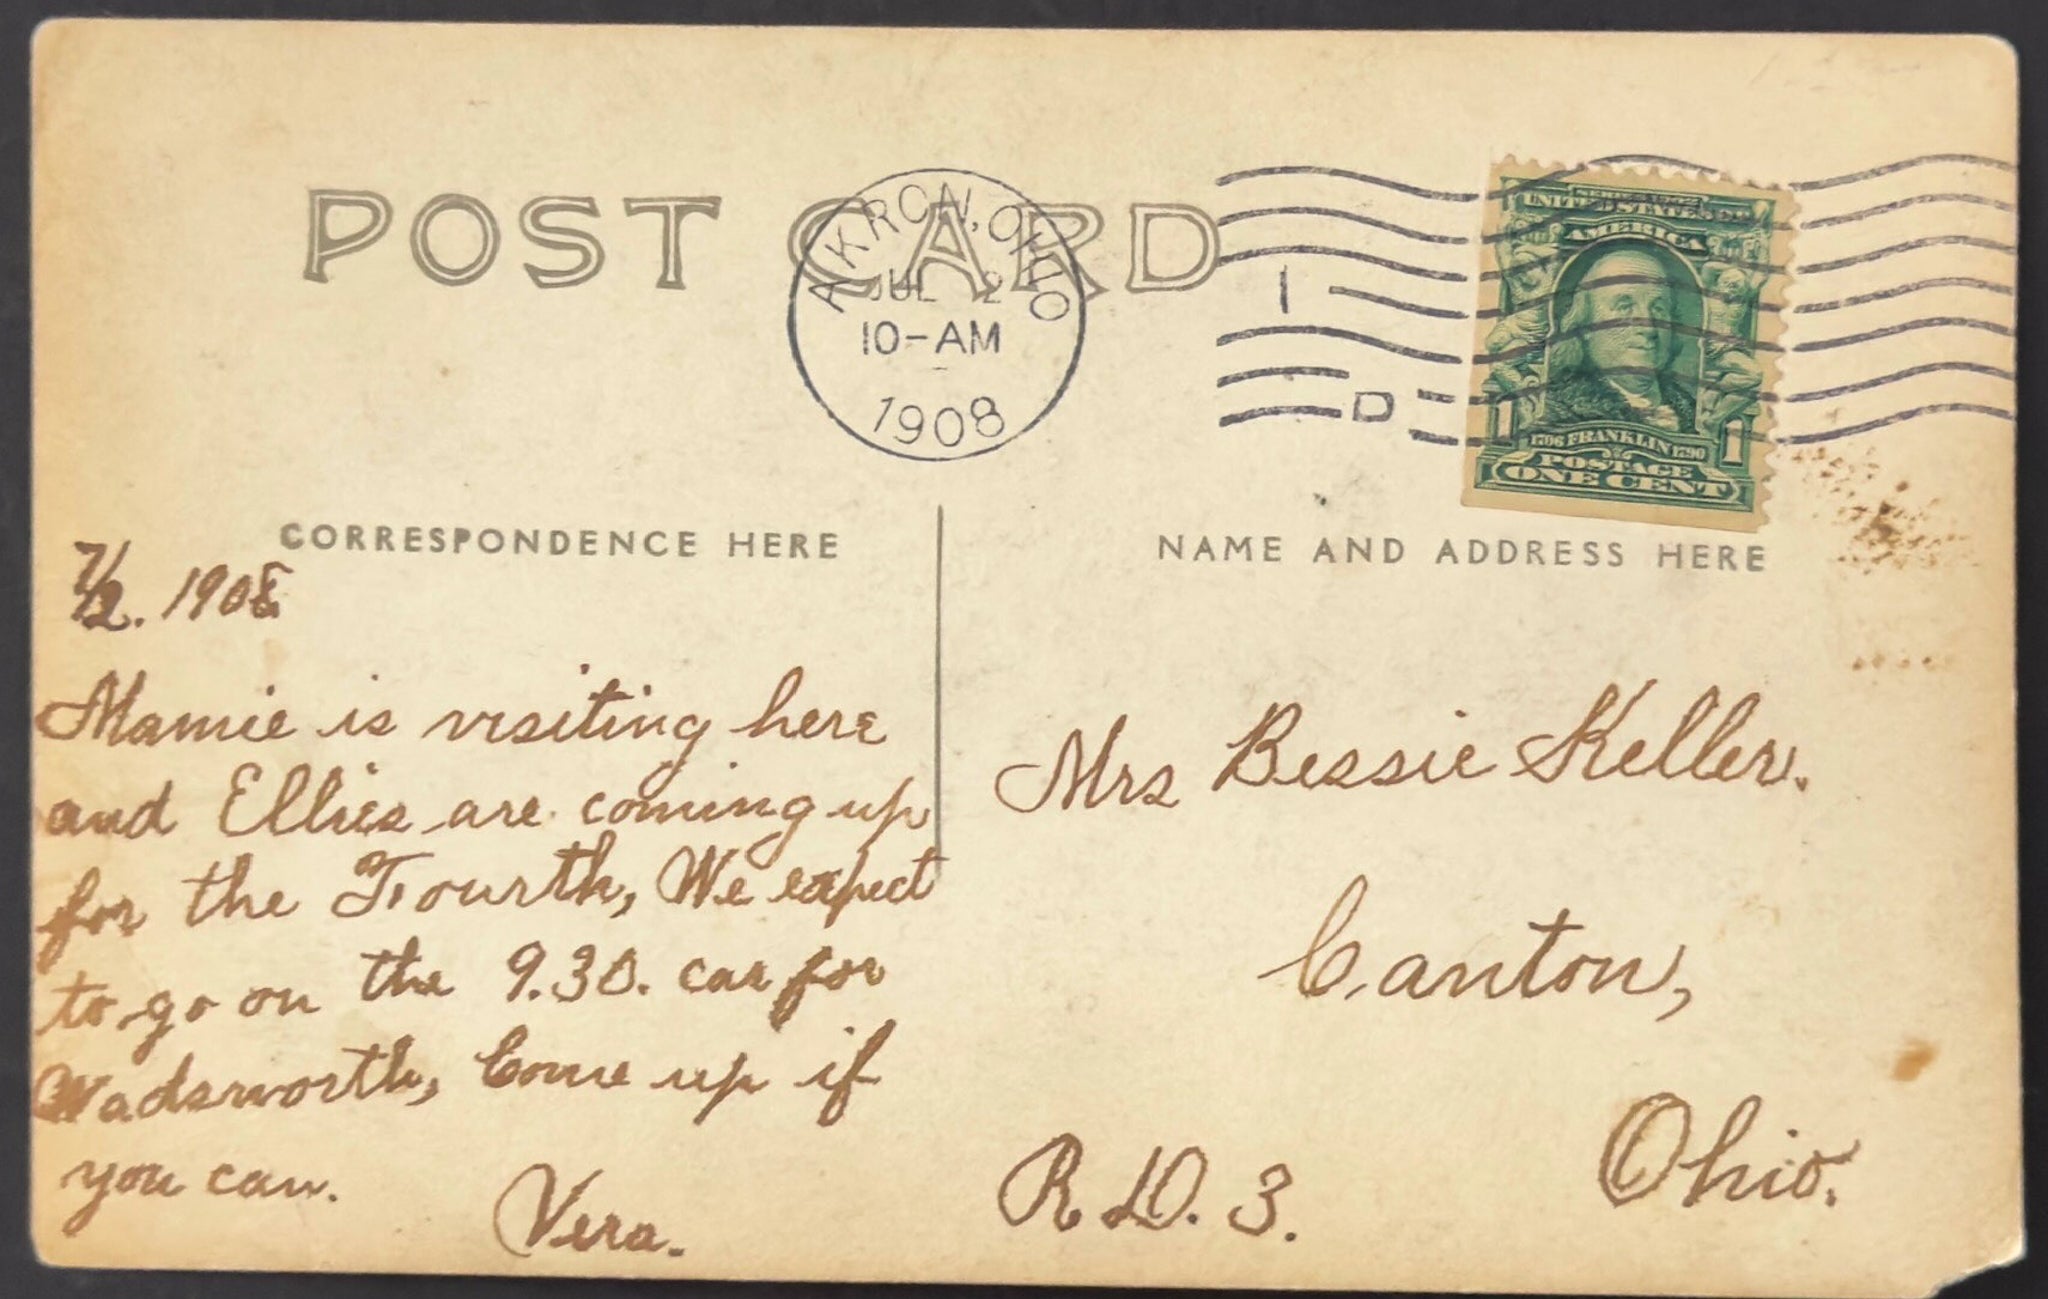 POST CARD
AKRON, OHIO
JUL 2
10-AM
1908
1
D
SERIES 1902
UNITED STATES OF
AMERICA
1706 FRANKLIN 1790
POSTAGE
1 ONE CENT 1
CORRESPONDENCE HERE
7/2. 1908
Mamie is visiting here
and Ellies are coming up
for the Fourth, We expect
to go on the 9.30. car for
Wadsworth, Come up if
you can.
Vera.
NAME AND ADDRESS HERE
Mrs Bessie Keller.
Canton,
Ohio.
R.D. 3.